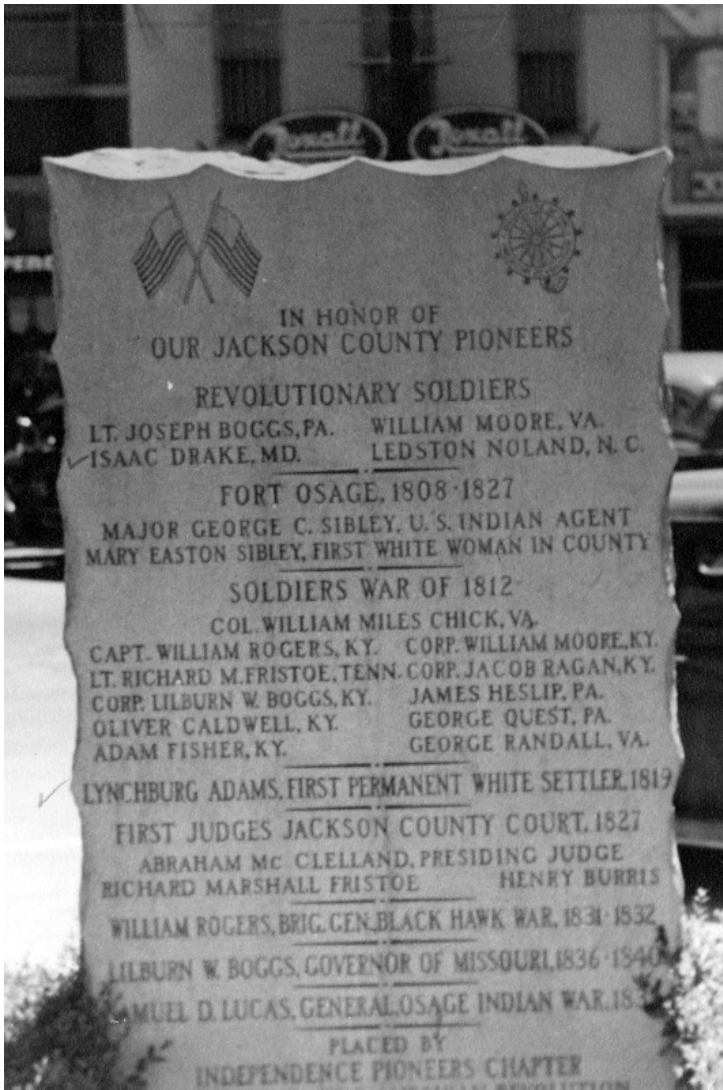 Rexall Rexall
IN HONOR OF
OUR JACKSON COUNTY PIONEERS
REVOLUTIONARY SOLDIERS
LT. JOSEPH BOGGS, PA. WILLIAM MOORE, VA.
ISAAC DRAKE, MD. LEDSTON NOLAND, N. C.
FORT OSAGE, 1808-1827
MAJOR GEORGE C. SIBLEY, U. S. INDIAN AGENT
MARY EASTON SIBLEY, FIRST WHITE WOMAN IN COUNTY
SOLDIERS WAR OF 1812
COL. WILLIAM MILES CHICK, VA.
CAPT. WILLIAM ROGERS, KY. CORP. WILLIAM MOORE, KY.
LT. RICHARD M. FRISTOE, TENN. CORP. JACOB RAGAN, KY.
CORP. LILBURN W. BOGGS, KY. JAMES HESLIP, PA.
OLIVER CALDWELL, KY. GEORGE QUEST, PA.
ADAM FISHER, KY. GEORGE RANDALL, VA.
LYNCHBURG ADAMS, FIRST PERMANENT WHITE SETTLER, 1819
FIRST JUDGES JACKSON COUNTY COURT, 1827
ABRAHAM Mc CLELLAND, PRESIDING JUDGE
RICHARD MARSHALL FRISTOE HENRY BURRIS
WILLIAM ROGERS, BRIG. GEN. BLACK HAWK WAR, 1831-1832
LILBURN W. BOGGS, GOVERNOR OF MISSOURI, 1836-1840
SAMUEL D. LUCAS, GENERAL, OSAGE INDIAN WAR,
PLACED BY
INDEPENDENCE PIONEERS CHAPTER